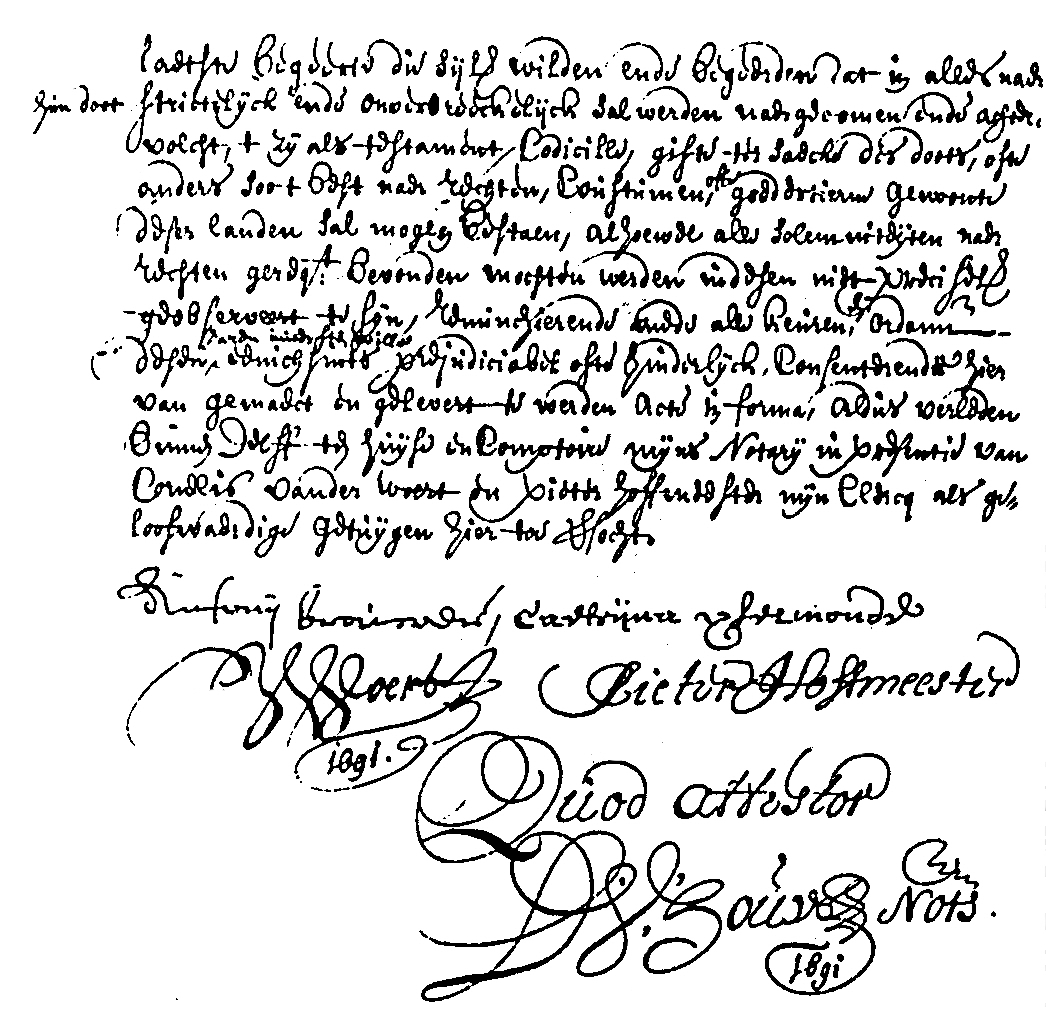 laetste begeerte die sijl: wilden ende begeerden dat in alles nae
hun doot strictelijck ende onverbreeckelijck sal werden naergecomen ende achter-
volcht, 't zy als testament, Codicille, gifte ter saecke des doots, ofte
anders soo 't best naer rechten, Coustumen, ofte goede manieren Gewoonte
deser landen sal mogen bestaen, alhoewel alle solemniteijten naer
rechten gereq:t bevonden mochten werden in desen niet precisel:
geobserveert te sijn, renunchierende mede alle keuren, Ordonn
desen eenichsints prejudiciabel ofte hinderlijck, Consenterende hier
van gemaect en gelevert te werden Acte in forma, Aldus verleden
binnen Delft ten huijse en Comptoire mijns Notarij in presentie van
Cornelis vander woert en Pieter hoffmeester mijn Clercq als ge-
loofwaerdige getuijgen hier toe versocht.
Antonij Brouwer, Catrijna
Woert Pieter Hoffmeester
1691.
Quod attestor
Nots.
1691